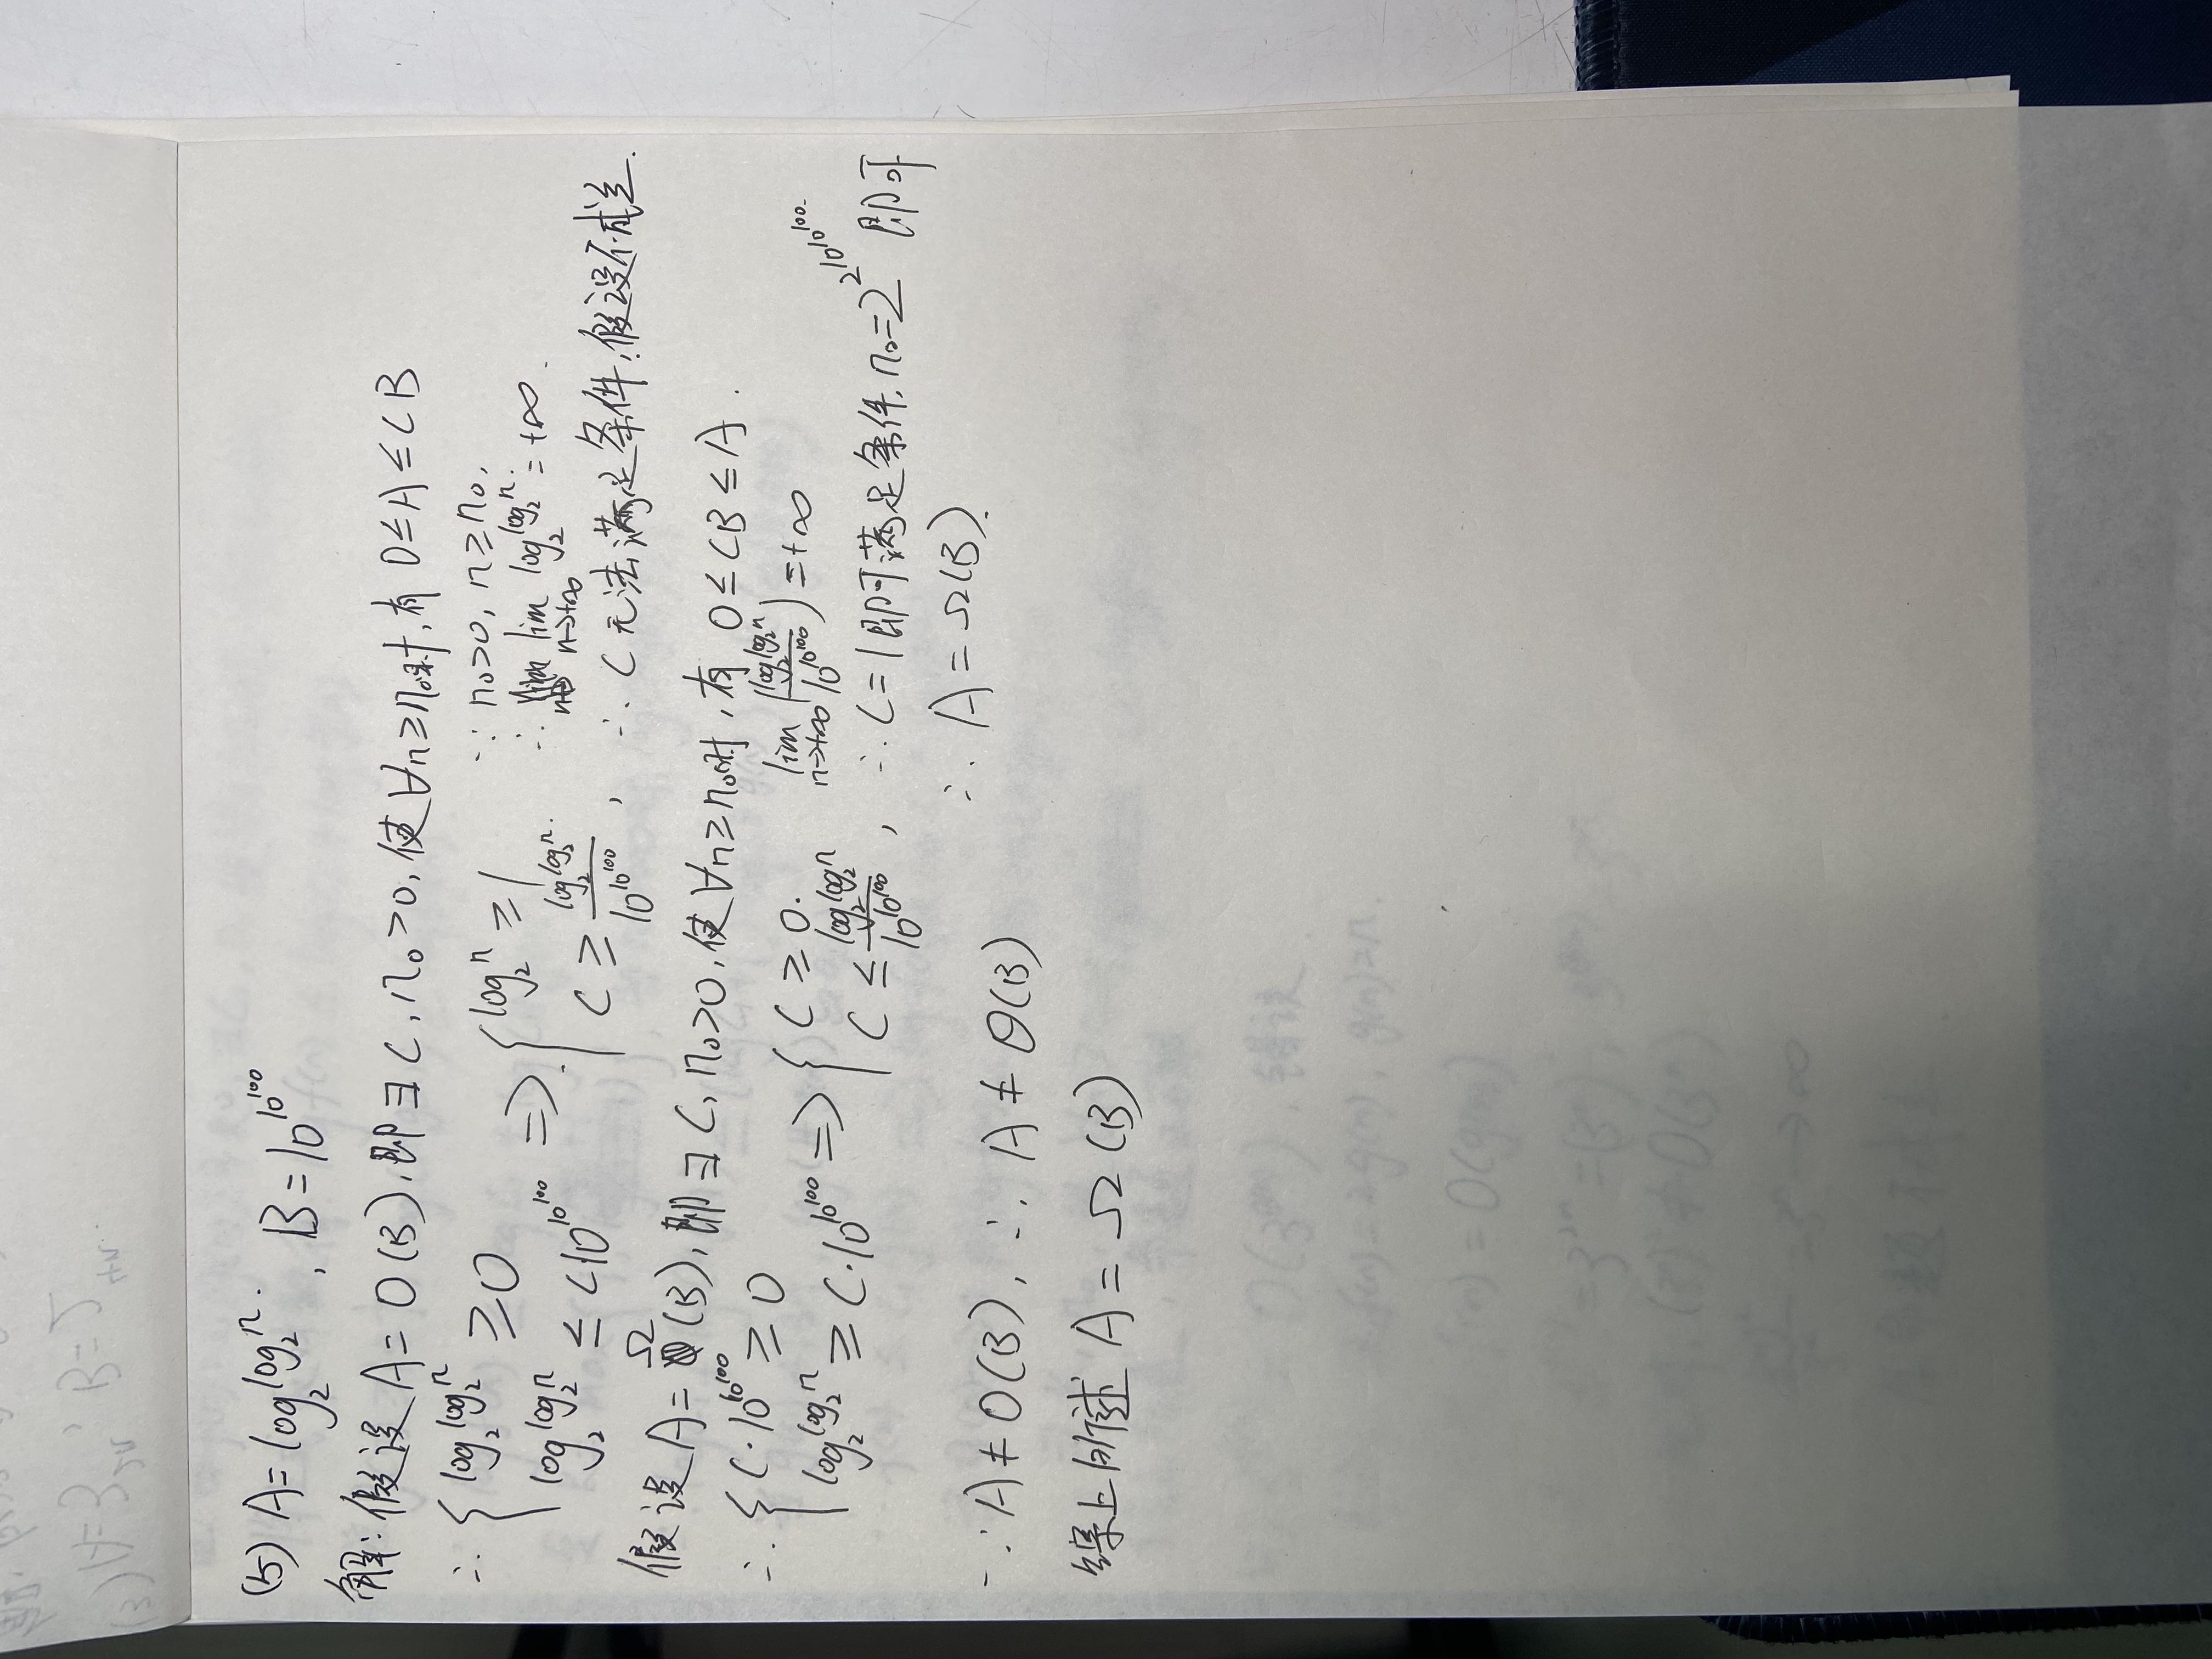 (3) A=3^{2n}, B=
(5) A=log_2 log_2 n, B=10^{10^{100}}
解:假设A=O(B),即∃C,n₀>0,使∀n≥n₀时,有0≤A≤CB
∴ { log_2 log_2 n ≥0 ; log_2 log_2 n ≤ C·10^{10^{100}} => { log_2 n ≥1 ; C ≥ (log_2 log_2 n)/(10^{10^{100}}),
∵ n₀>0, n≥n₀,
∴ lim_{n→+∞} log_2 log_2 n = +∞.
∴ C无法满足条件,假设不成立.
假设A=Ω(B),即∃C,n₀>0,使∀n≥n₀时,有 0≤CB≤A.
∴ { C·10^{10^{100}} ≥0 ; log_2 log_2 n ≥ C·10^{10^{100}} => { C≥0. ; C ≤ (log_2 log_2 n)/(10^{10^{100}}),
lim_{n→+∞} ((log_2 log_2 n)/(10^{10^{100}})) = +∞
∴ C=1即可满足条件,n₀=2^{2^{10^{10^{100}}}} 即可
∴ A=Ω(B).
∵A≠O(B), ∴ A≠Θ(B)
综上所述 A=Ω(B)